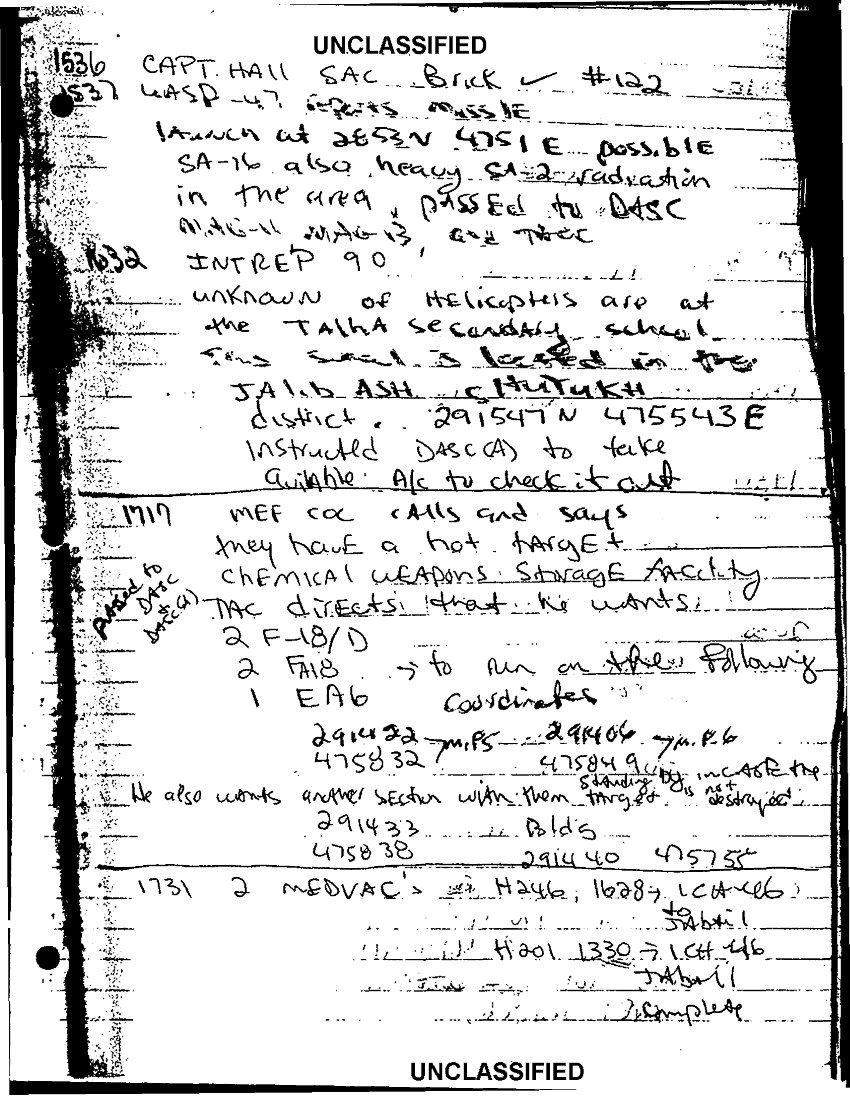 UNCLASSIFIED
1536 CAPT. HALL SAC Brick ✓ #122
1537 WASP-47 reports missle
launch at 2853N 4751E possible
SA-16 also heavy SA-2 radiation
in the area, passed to DASC
MAG-11 MAG-13, and TAOC
1632 INTREP 90
unknown # of Helicopters are at
the TALHA secondary school.
This school is located in the
JAlib ASH SHUYUKH
district. 291547N 475543E
Instructed DASC(A) to take
available A/c to check it out
1717 MEF COC calls and says
they have a hot target
chemical weapons storage facility
passed to DASC + DASC(A)
TAC directs that he wants
2 F-18/D
2 FA18 → to run on the following
1 EA6 coordinates
291422 → M.P.5 291406 → M.P.6
475832 475849
He also wants another section with them standing by incase the target is not destroyed.
291433 Bldg
475838 291440 475755
1731 2 MEDVAC's H246, 1628 → 1 CH46
to Jabail
H201 1330 → 1 CH 46
Jabail
complete
UNCLASSIFIED